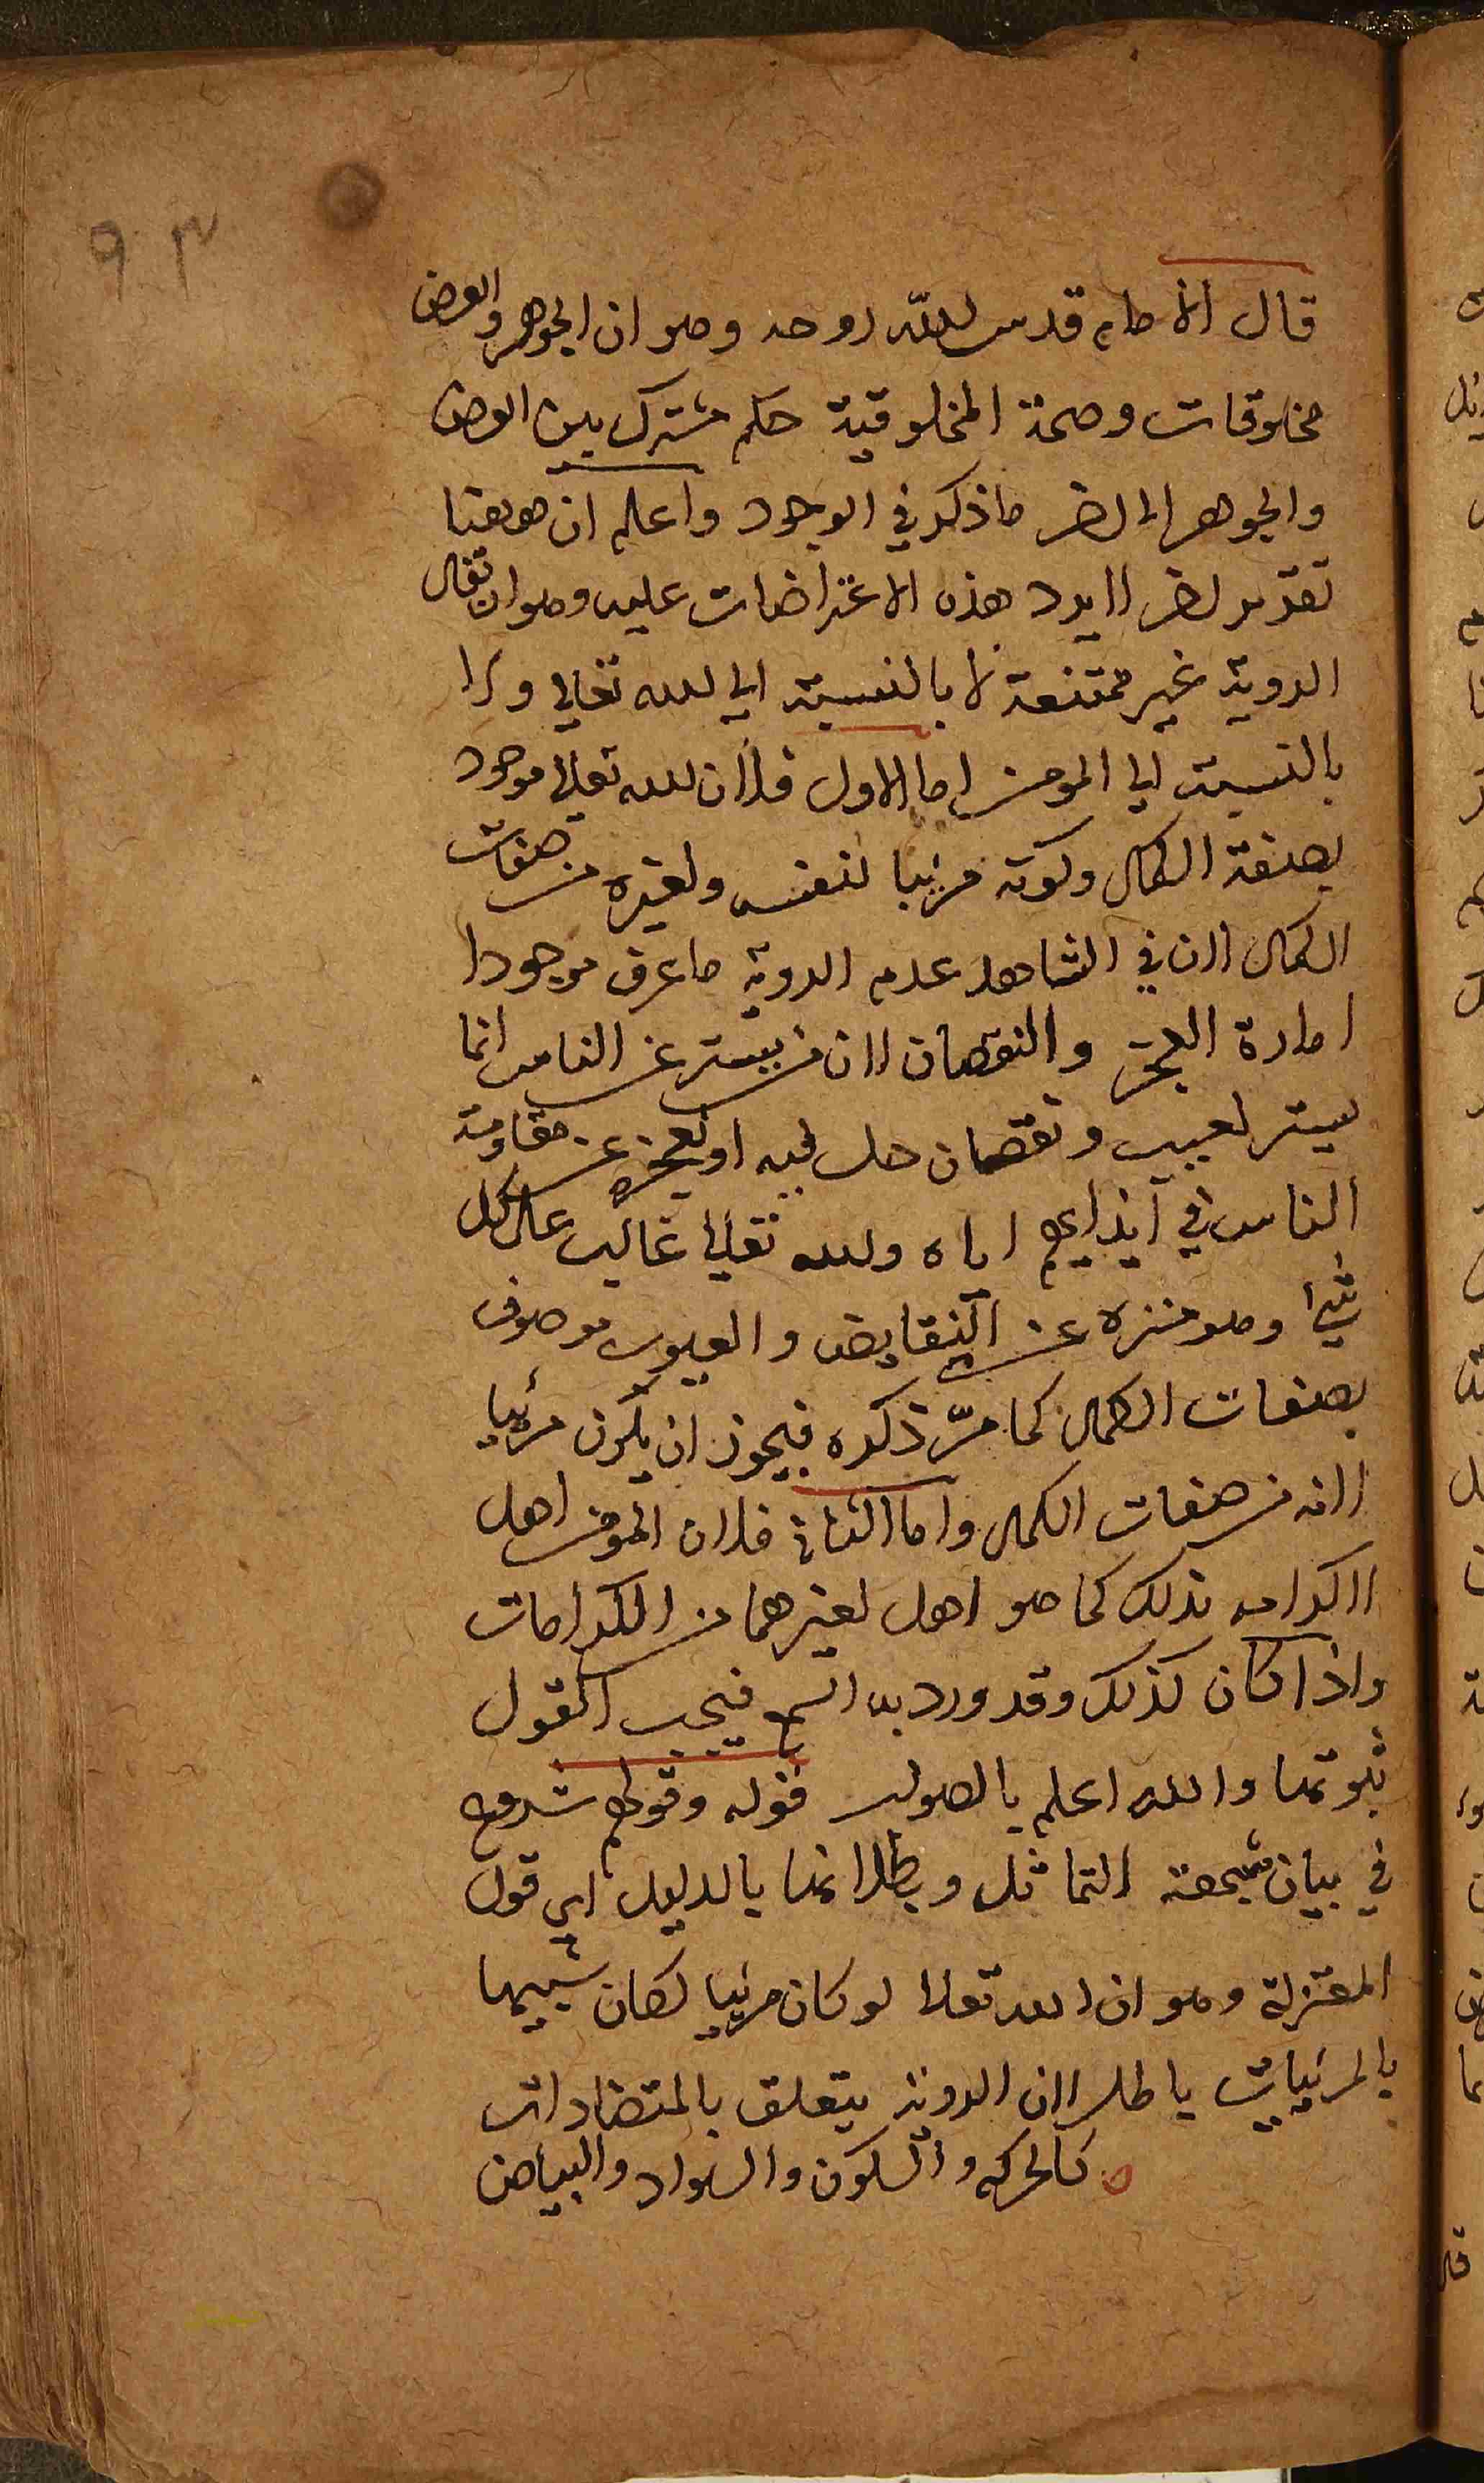 ٩٣
قال الامام قدس الله روحه وهو ان الجوهر والعرض
مخلوقات وصحة المخلوقية حكم مشترك بين العرض
والجوهر الى اخر ما ذكر في الوجود واعلم ان ههنا
تقدير اخر لا يرد هذه الاعتراضات عليه وهو ان يقال
الروية غير ممتنعة لا بالنسبة الى الله تعالى ولا
بالنسبة الى المومن اما الاول فلان الله تعالى موجود
بصفة الكمال وكونه مرئيا لنفسه ولغيره من صفات
الكمال لان في الشاهد عدم الروية ما عرف موجودا
امارة العجز والنقصان لان من يستتر عن الناس انما
يستتر لعيب ونقصان حل فيه او لعجزه عن مقاومة
الناس في ايذايهم اياه والله تعالى غالب على كل
شيئ وهو منزه عن النقايض والعيوب موصوف
بصفات الكمال كما مرّ ذكره فيجوز ان يكون مرئيا
لانه من صفات الكمال واما الثاني فلان المومن اهل
لاكرامه بذلك كما هو اهل لغيرهما من الكرامات
واذا كان كذلك وقد ورد به السمع فيجب القول
بثبوتها والله اعلم بالصواب قوله وقولهم شروع
في بيان شبهة التماثل وبطلانها بالدليل اي قول
المعتزلة وهو ان الله تعالى لو كان مرئيا لكان شبيها
بالمرئيات باطل لان الروية يتعلق بالمتضادات
كالحركه والسكون والسواد والبياض